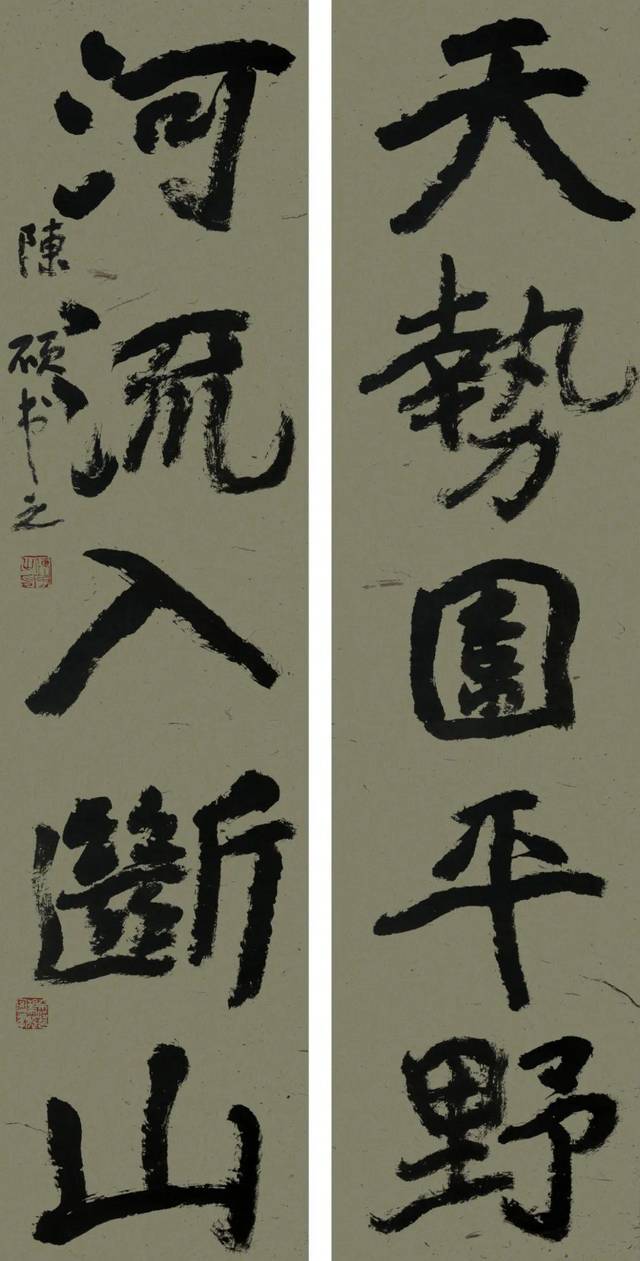 天勢圍平野
河流入斷山
陳硕书之